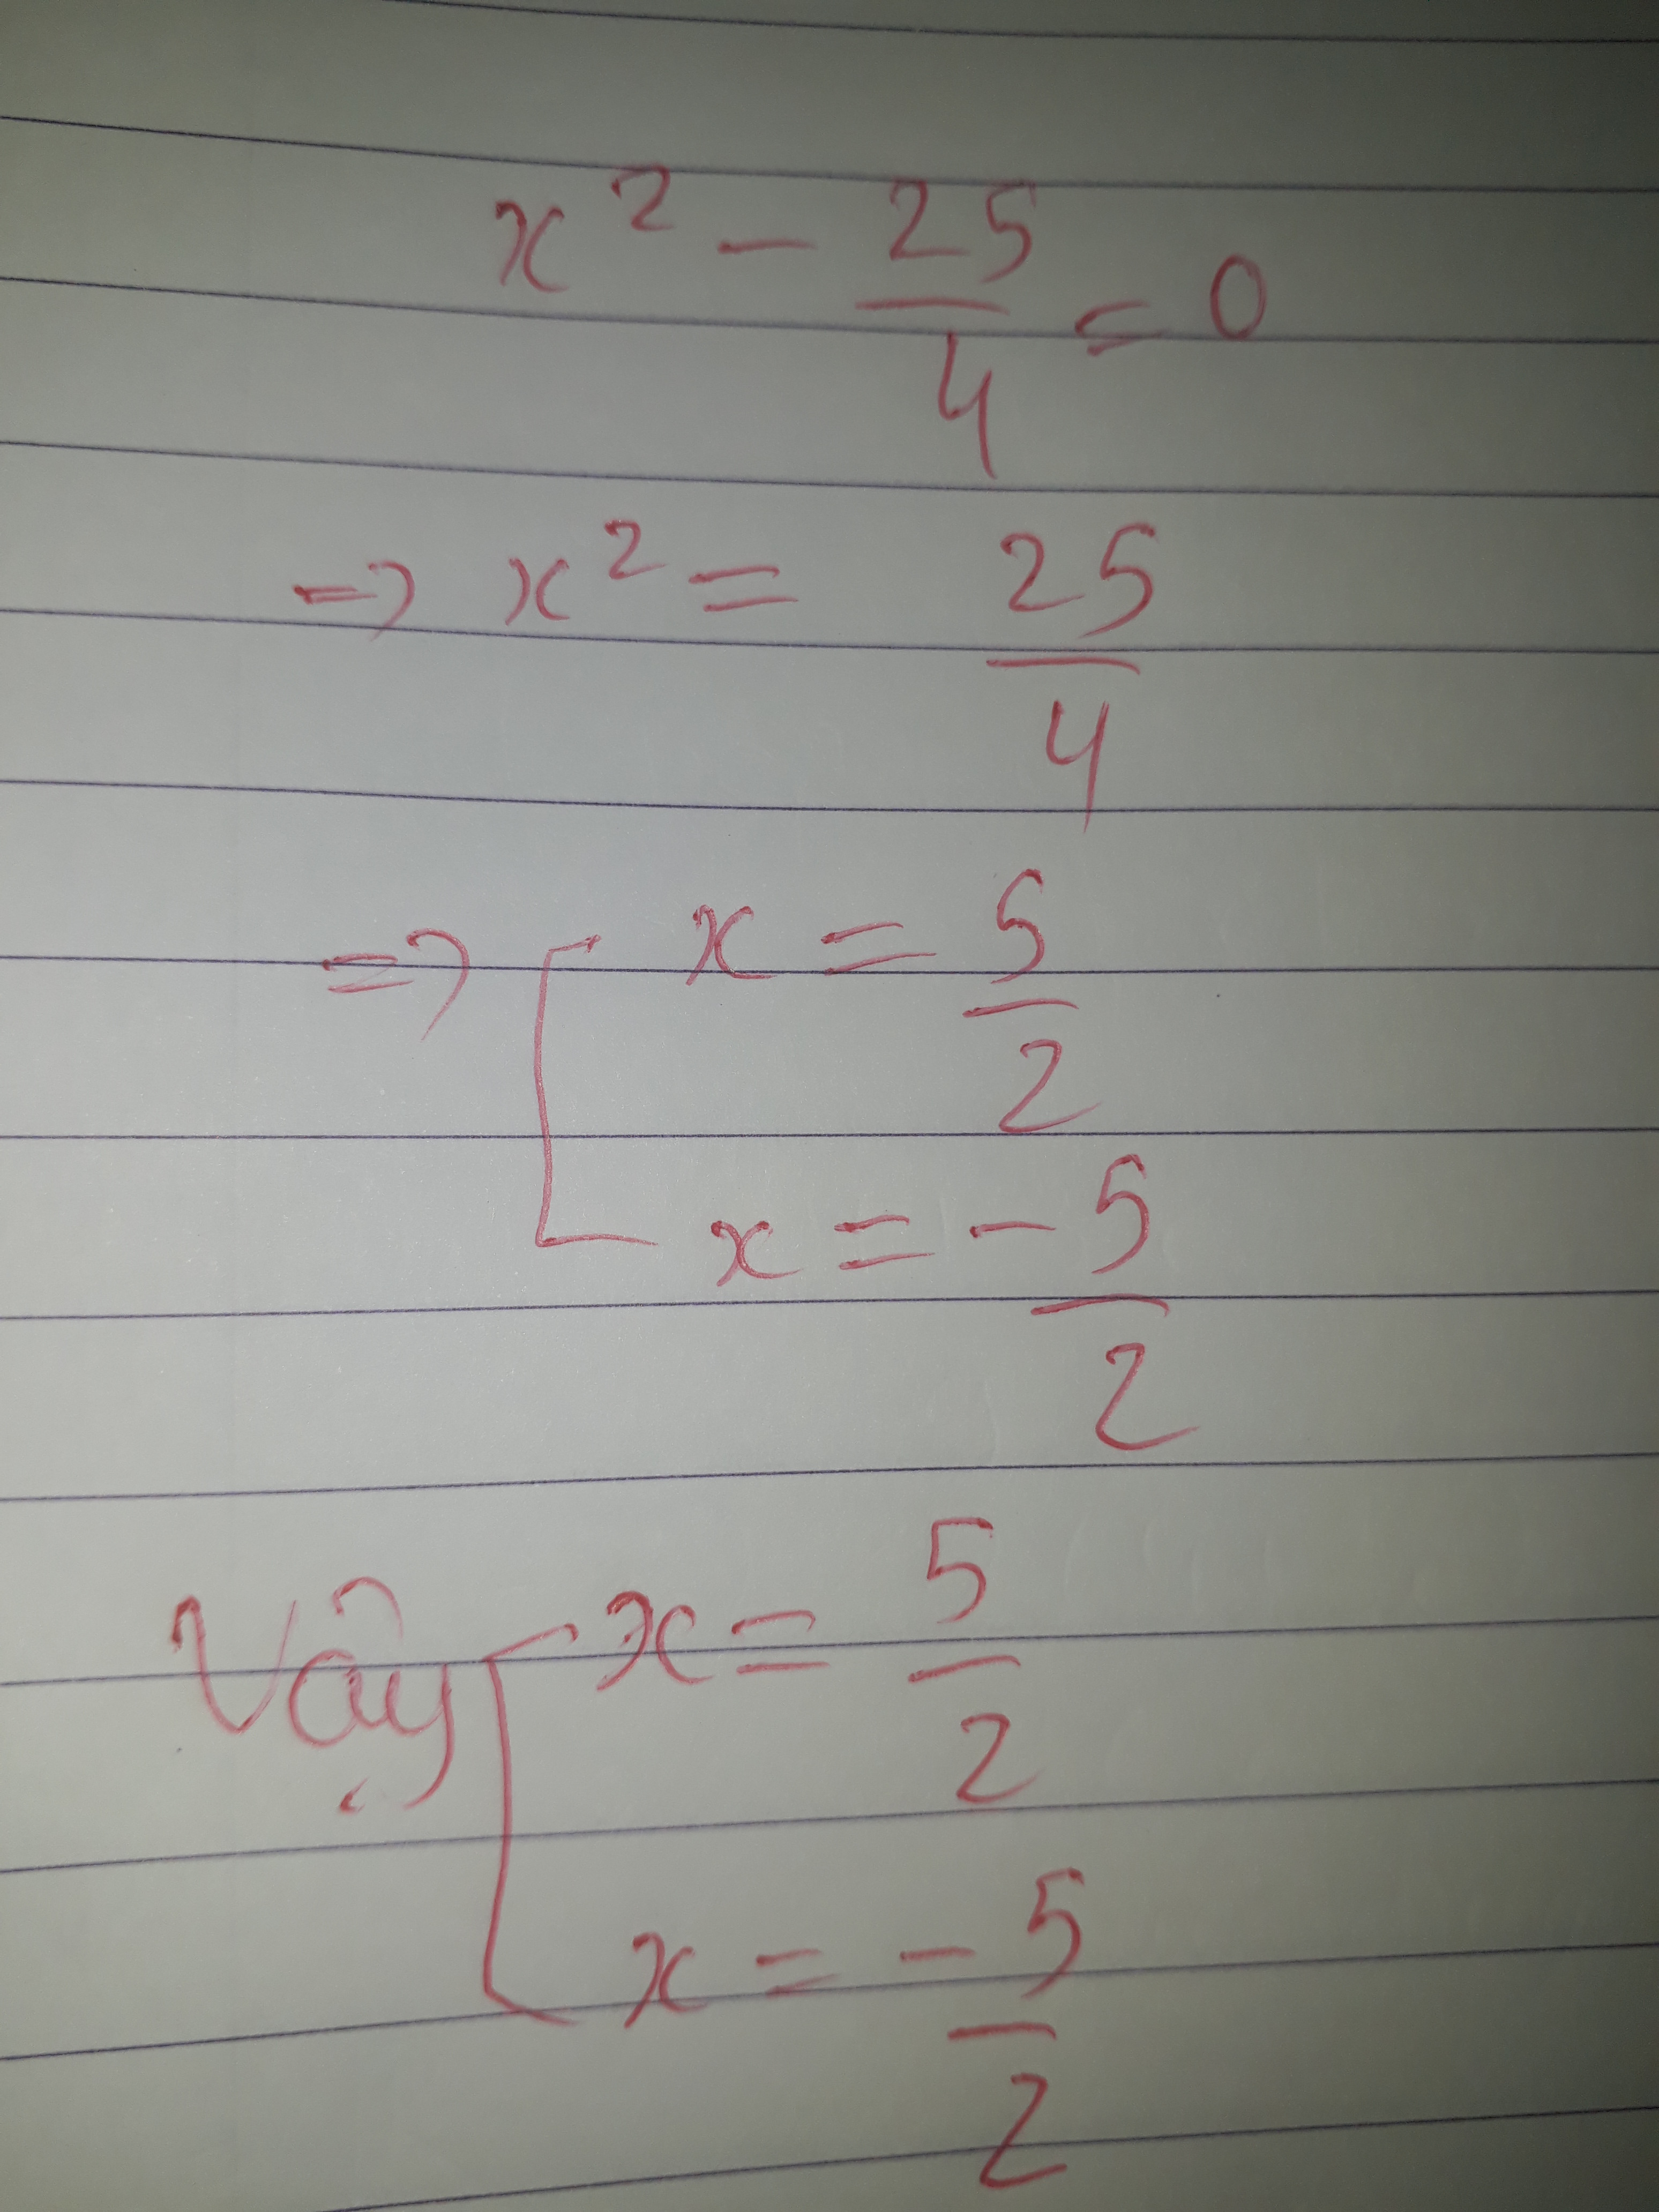 x² - 25/4 = 0
=> x² = 25/4
=> [ x = 5/2
x = - 5/2
Vậy [ x = 5/2
x = - 5/2